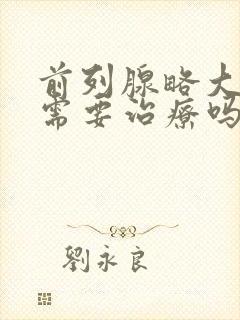 前列腺略大
需要治疗吗
劉永良